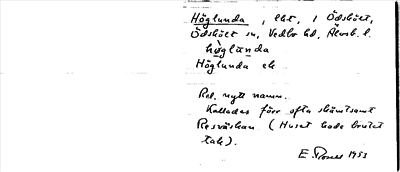 Höglunda, lht, i Ödskölt,
Ödskölt sn, Vedbo hd, Älvsb. l.
höglunda
Höglunda ek
Rel. nytt namn.
Kallades förr ofta skämtsamt
Resväskan. (Huset hade brutet
tak).
E. 1953